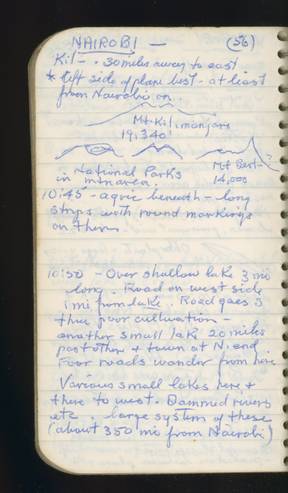 NAIROBI — (56)
Kil - . 30 miles away to east
* Left side of plane best - at least
from Nairobi on..
Mt. Kilimanjaro
19,340'
Mt
14,000
in National Parks
in area.
10:45 - agric beneath - long
strips with round markings
on them.
10:50 - Over shallow lake 3 mi
long. Road on west side
1 mi from lake. Road goes S
thru poor cultivation -
another small lake 20 miles
past other + town at N. end
Poor roads wander from here
Various small lakes here +
there to west. Dammed rivers
etc. large system of these
(about 350 mi from Nairobi)